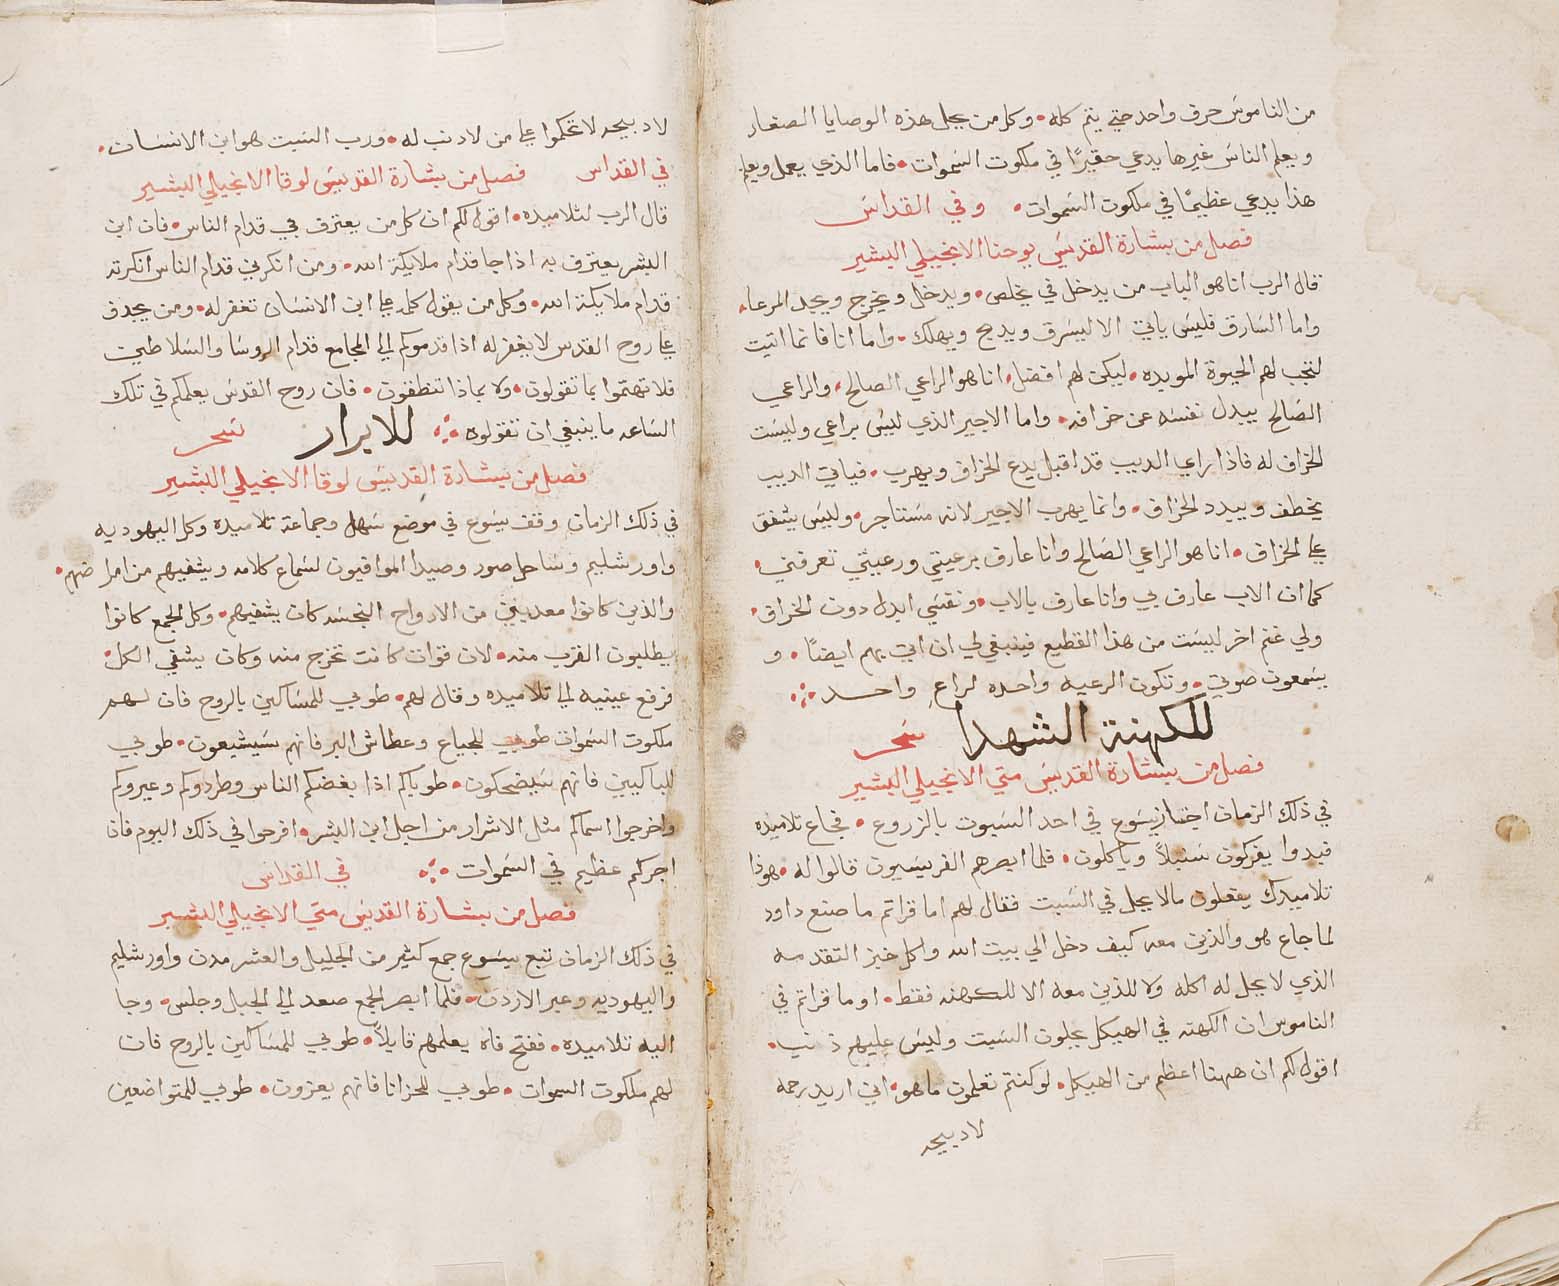 من الناموس حرف واحد حتي يتم كله • وكل من يحل هذه الوصايا الصغار
ويعلم الناس غيرها يدعي حقيرًا في ملكوت السموات • فاما الذي يعمل ويعلم
هذا يدعي عظيمًا في ملكوت السموات • وفي القداس
فصل من بشارة القديس يوحنا الانجيلي البشير
قال الرب انا هو الباب من يدخل في يخلص • ويدخل ويخرج ويجد المرعا •
واما السارق فليس ياتي الا ليسرق ويدبح ويهلك • واما انا فانما اتيت
لتجب لهم الحيوة الموبده • ليكن لهم افضل • انا هو الراعي الصالح • والراعي
الصالح يبدل نفسه عن خرافه • واما الاجير الذي ليس براعي وليست
الخراف له فاذا راي الديب قد اقبل يدع الخراف ويهرب • فياتي الديب
يخطف ويبدد الخراف • وانما يهرب الاجير لانه مستاجر • وليس يشفق
علي الخراف • انا هو الراعي الصالح وانا عارف برعيتي ورعيتي تعرفني •
كما ان الاب عارف بي وانا عارف بالاب • ونفسي ابدل دون الخراف •
ولي غنم اخر ليست من هذا القطيع فينبغي لي ان اتي بهم ايضًا • و
يسمعون صوتي • وتكون الرعيه واحده لراعٍ واحد ⁘
للكهنة الشهدا سحر
فصل من بشارة القديس متي الانجيلي البشير
في ذلك الزمان اجتاز يسوع في احد السبوت بالزروع • فجاع تلاميذه
فبدوا يفركون سنبلاً وياكلون • فلما ابصرهم الفريسيون قالوا له • هوذا
تلاميدك يفعلون ما لا يحل في السبت فقال لهم اما قراتم ما صنع داود
لما جاع هو والذين معه كيف دخل الي بيت الله واكل خبز التقدمه
الذي لا يحل له اكله ولا للذين معه الا للكهنه فقط • او ما قراتم في
الناموس ان الكهنه في الهيكل يحلون السبت وليس عليهم ذنب •
اقول لكم ان ههنا اعظم من الهيكل • لو كنتم تعلمون ما هو • اني اريد رحمه
لا دبيحه
لا دبيحه لا تحكموا علي من لا دنب له • ورب السبت هو ابن الانسان •
في القداس فصل من بشارة القديس لوقا الانجيلي البشير
قال الرب لتلاميذه • اقول لكم ان كل من يعترف بي قدام الناس • فان ابن
البشر يعترف به اذا جا قدام ملايكة الله • ومن انكرني قدام الناس انكرته
قدام ملايكة الله • وكل من يقول كلمه علي ابن الانسان تغفر له • ومن يجذف
علي روح القدس لا يغفر له اذا قدموكم الي المجامع قدام الروسا والسلاطين
فلا تهتموا بما تقولون • ولا بماذا تنطقون • فان روح القدس يعلمكم في تلك
الساعه ما ينبغي ان تقولوه ⁘ للابرار سحر
فصل من بشارة القديس لوقا الانجيلي البشير
في ذلك الزمان وقف يسوع في موضع سهل وجماعة تلاميذه وكل اليهوديه
واورشليم وساحل صور وصيدا الموافيون لسماع كلامه ويشفيهم من امراضهم •
والذين كانوا معدبين من الارواح النجسه كان يشفيهم • وكل الجمع كانوا
يطلبون القرب منه • لان قوات كانت تخرج منه وكان يشفي الكل •
فرفع عينيه الي تلاميده وقال لهم • طوبي للمساكين بالروح فان لهم
ملكوت السموات طوبي للجياع وعطاش البر فانهم سيشبعون • طوبي
للباكيين فانهم سيضحكون • طوباكم اذا بغضكم الناس وطردوكم وعيروكم
واخرجوا اسماكم مثل الاشرار من اجل ابن البشر • افرحوا في ذلك اليوم فان
اجركم عظيم في السموات ⁘ في القداس
فصل من بشارة القديس متي الانجيلي البشير
في ذلك الزمان تبع يسوع جمع كثير من الجليل والعشر مدن واورشليم
واليهوديه وعبر الاردن • فلما ابصر الجمع صعد الي الجبل وجلس • وجا
اليه تلاميده • ففتح فاه يعلمهم قايلاً • طوبي للمساكين بالروح فان
لهم ملكوت السموات • طوبي للحزانا فانهم يعزون • طوبي للمتواضعين